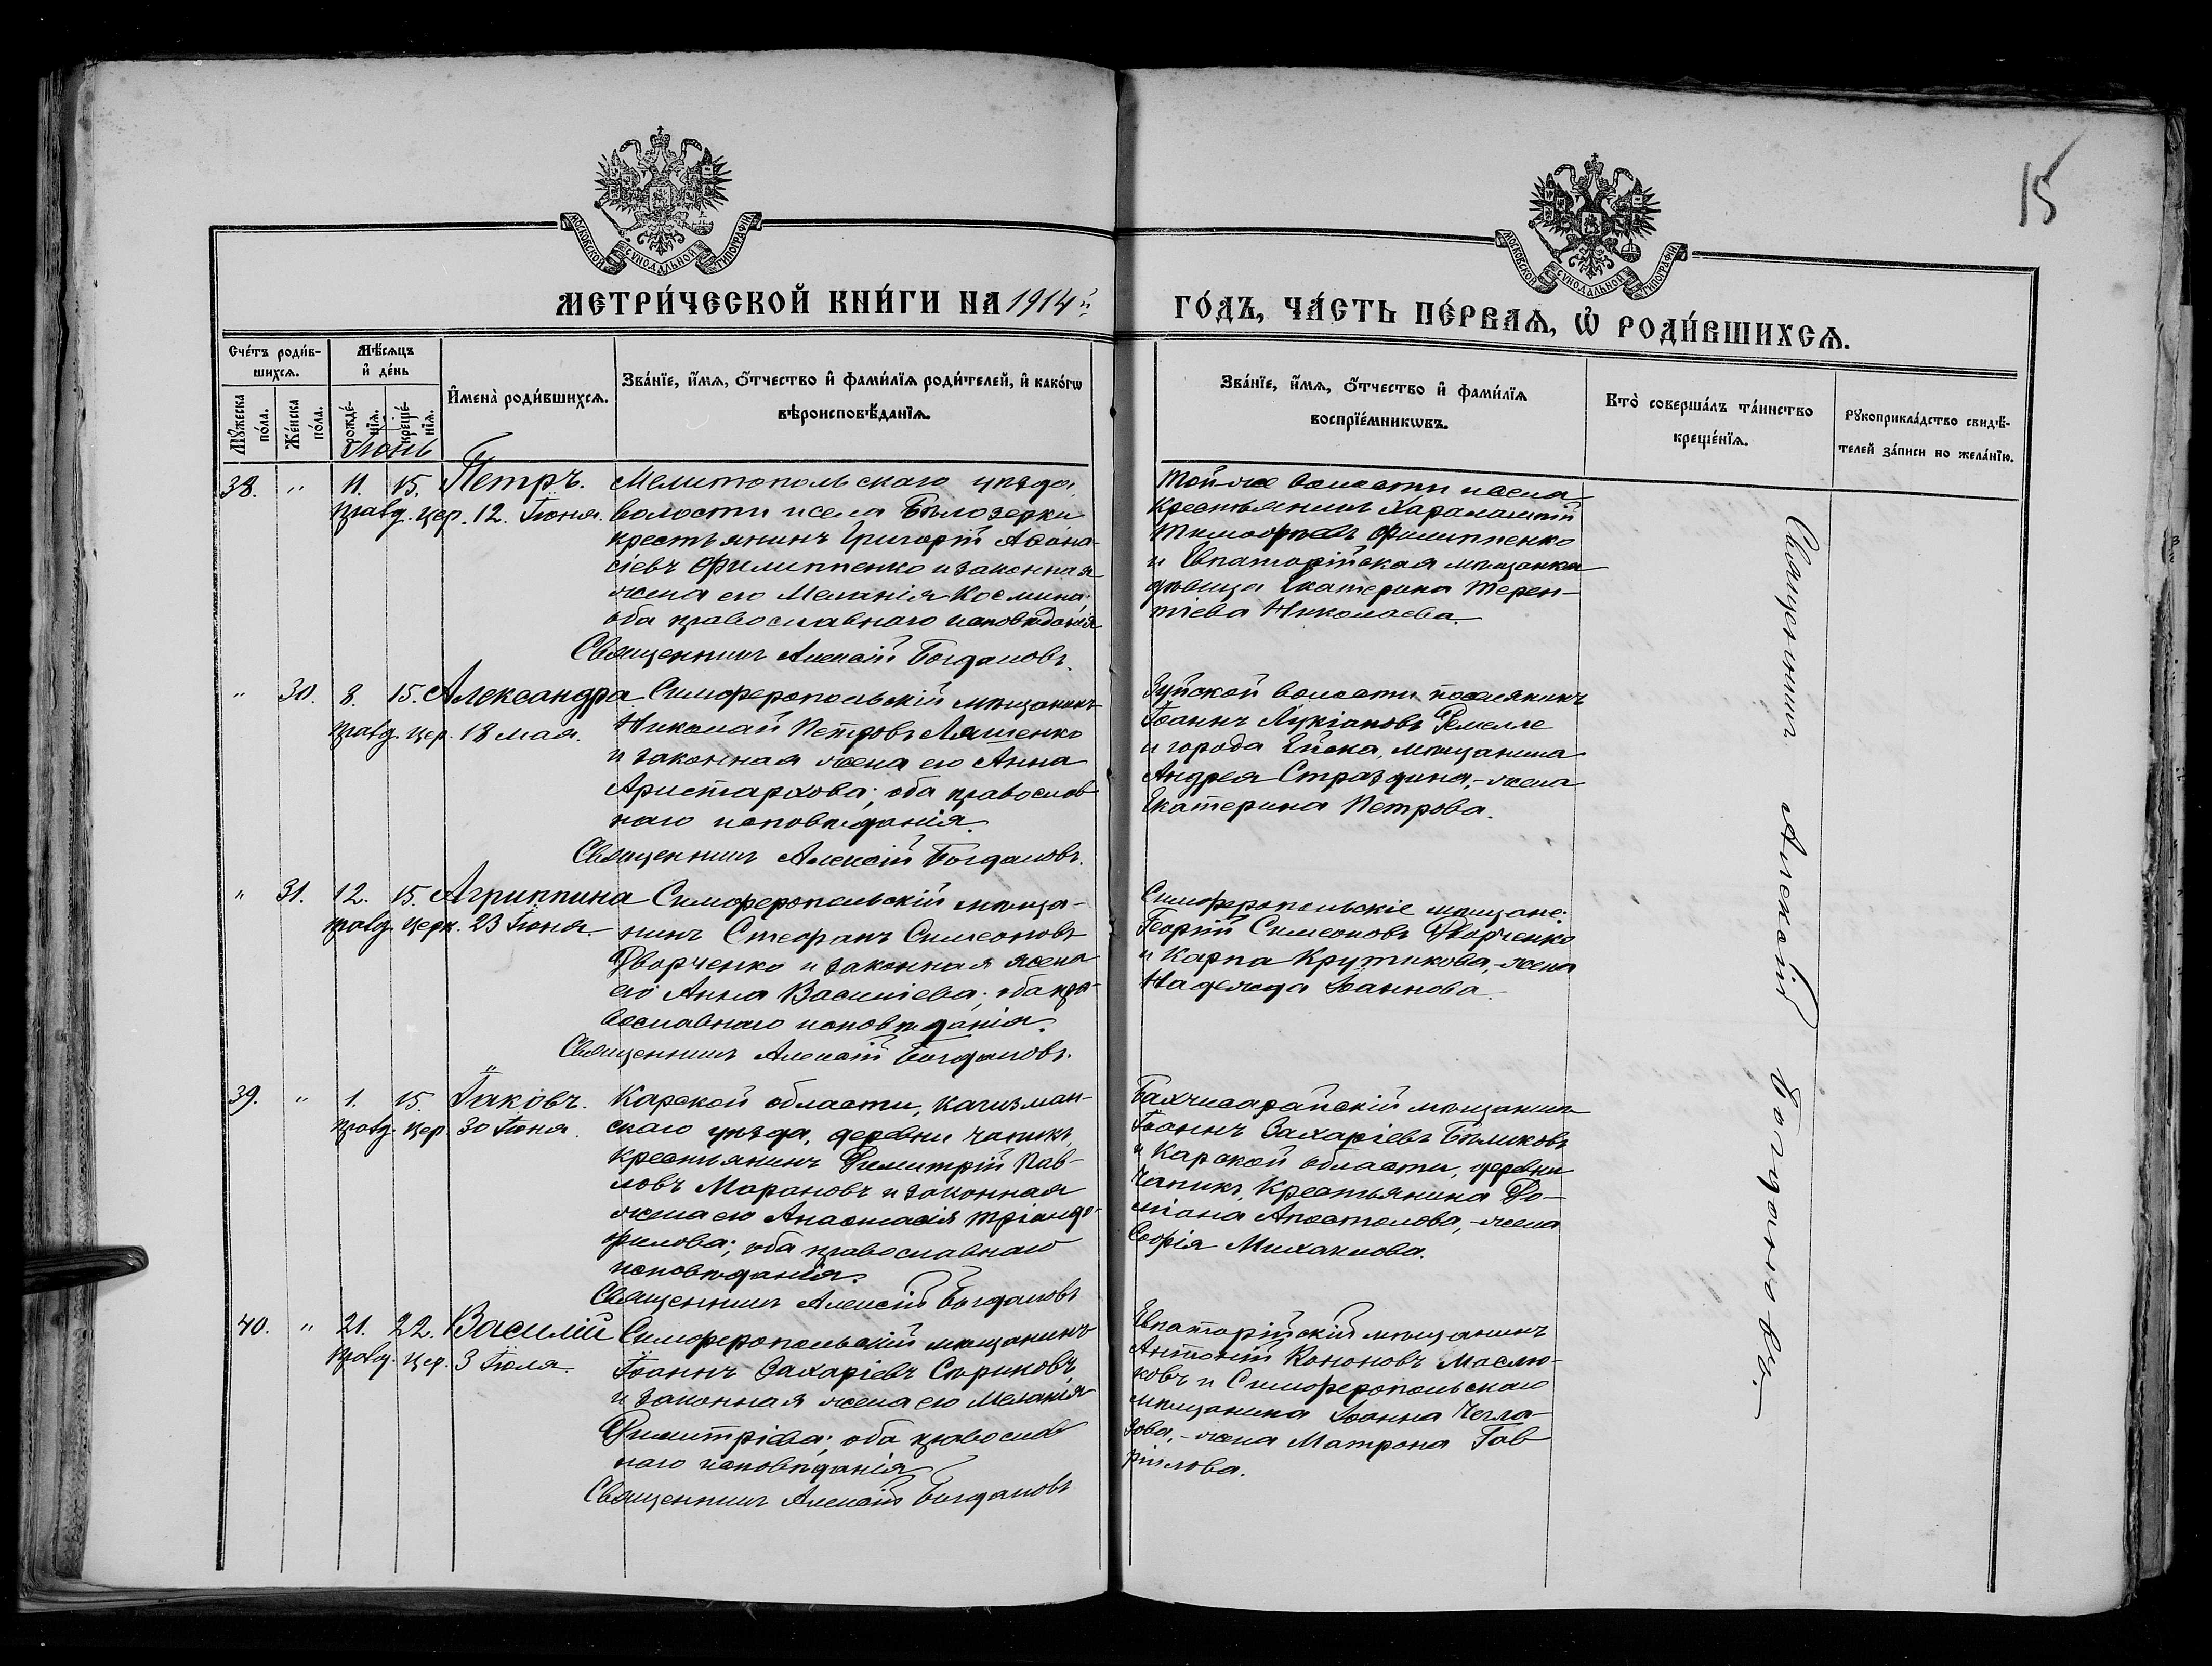 15
МОСКОВСКОЙ СУНОДАЛЬНОЙ ТИПОГРАФІИ
МОСКОВСКОЙ СУНОДАЛЬНОЙ ТИПОГРАФІИ
МЕТРИ́ЧЕСКОЙ КНИ́ГИ НА 1914й
ГО́ДЪ, ЧА́СТЬ ПЕ́РВАѦ, Ѡ҆ РОДИ́ВШИХСѦ.
Сче́тъ роди́в-
шихсѧ.
Мꙋ́жеска по́ла.
Же́нска по́ла.
Мѣ́сѧцъ
и҆ де́нь
рожде́-
нїѧ.
креще́-
нїѧ.
И҆мена̀ роди́вшихсѧ.
Зва́нїе, и҆́мѧ, ѻ҆́тчество и҆ фами́лїѧ роди́телей, и҆ како́гѡ
вѣроисповѣ́данїѧ.
Зва́нїе, и҆́мѧ, ѻ҆́тчество и҆ фами́лїѧ
воспрїе́мникѡвъ.
Кто̀ соверша́лъ та́инство
креще́нїѧ.
Рꙋкоприкла́дство свидѣ́-
телей за́писи по жела́нїю.
Іюнь
38. " 11. 15. Петръ.
празд. цер. 12. Іюня.
Мелитопольскаго уѣзда,
волости и села Бѣлозерки
крестьянинъ Григорій Аѳана-
сіевъ Филиппенко и законная
жена его Меланія Космина;
оба православнаго исповѣданія
Священникъ Алексій Богдановъ.
Той-же волости и села
крестьянинъ Харалампій
Тимофѣевъ Филиппенко
и Евпаторійская мѣщанка
дѣвица Екатерина Терен-
тіева Николаева.
" 30. 8. 15. Александра
празд. цер. 18 мая.
Симферопольскій мѣщанинъ
Николай Петровъ Ляшенко
и законная жена его Анна
Аристархова; оба православ
наго исповѣданія.
Священникъ Алексій Богдановъ.
Зуйской волости поселянинъ
Іоаннъ Лукіановъ
и города Ейска, мѣщанина
Андрея Страздина,-жена
Екатерина Петрова.
" 31. 12. 15. Агриппина
празд. церк. 23 Іюня.
Симферопольскій мѣща-
нинъ Стефанъ Симеоновъ
Дворченко и законная жена
его Анна Василіева; оба пра-
вославнаго исповѣданія.
Священникъ Алексій Богдановъ.
Симферопольскіе мѣщане:
Георгій Симеоновъ Дворченко
и Карпа Крутикова,-жена
Надежда Іоаннова.
39. " 1. 15. Іаковъ.
празд. цер. 30 Іюня.
Карской области, Кагизман-
скаго уѣзда, деревни Чапикъ,
крестьянинъ Димитрій Пав-
ловъ Марановъ и законная
жена его Анастасія Тріанда-
филова; оба православнаго
исповѣданія.
Священникъ Алексій Богдановъ
Бахчисарайскій мѣщанинъ
Іоаннъ Захаріевъ Бѣликовъ
и Карской области, деревни
Чапикъ, крестьянина Да-
міана Апостолова,-жена
Софія Михаилова.
40. " 21. 22. Василій
празд. цер. 3 Іюля.
Симферопольскій мѣщанинъ
Іоаннъ Захаріевъ Сѣриковъ,
и законная жена его Меланія
Димитріева; оба православ
наго исповѣданія
Священникъ Алексій Богдановъ
Евпаторійскій мѣщанинъ
Антоній Кононовъ Маслю-
ковъ и Симферопольскаго
мѣщанина Іоанна Чегла-
зова,-жена Матрона Гав
ріилова.
Священникъ Алексій Богдановъ.